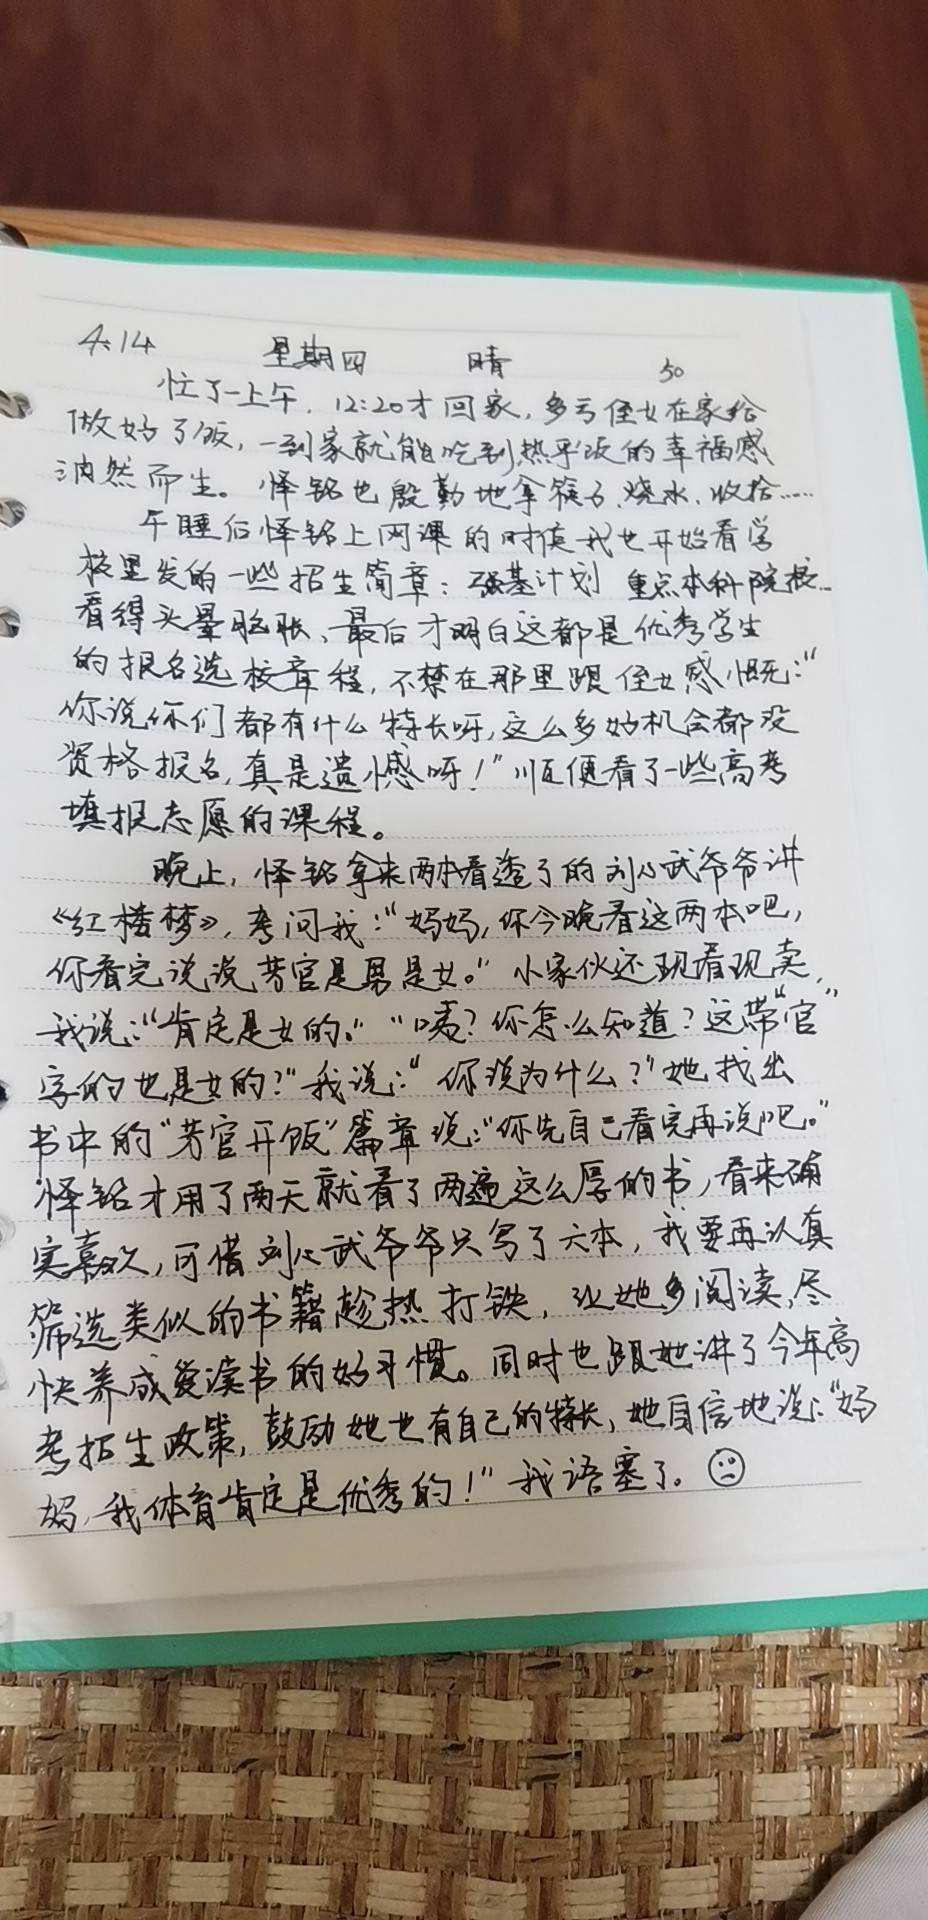 4.14 星期四 晴 50
忙了一上午，12:20才回家，多亏侄女在家给
做好了饭，一到家就能吃到热乎饭的幸福感
油然而生。怿铭也殷勤地拿筷子、烧水、收拾……
午睡后怿铭上网课的时候我也开始看学
校里发的一些招生简章：强基计划 重点本科院校…
看得头晕脑胀，最后才明白这都是优秀学生
的报名选校章程，不禁在那里跟侄女感慨：“
你说你们都有什么特长呀，这么多好机会都没
资格报名，真是遗憾呀！”顺便看了一些高考
填报志愿的课程。
晚上，怿铭拿来两本看透了的刘心武爷爷讲
《红楼梦》，考问我：“妈妈，你今晚看这两本吧，
你看完说说芳官是男是女。”小家伙还现看现卖，
我说：“肯定是女的。”“咦？你怎么知道？这带“官”
字的也是女的？”我说：“你说为什么？”她找出
书中的“芳官开饭”篇章说：“你先自己看完再说吧。”
怿铭才用了两天就看了两遍这么厚的书，看来确
实喜欢，可惜刘心武爷爷只写了六本，我要再认真
筛选类似的书籍趁热打铁，让她多阅读，尽
快养成爱读书的好习惯。同时也跟她讲了今年高
考招生政策，鼓励她也有自己的特长，她自信地说：“妈
妈，我体育肯定是优秀的！”我语塞了。